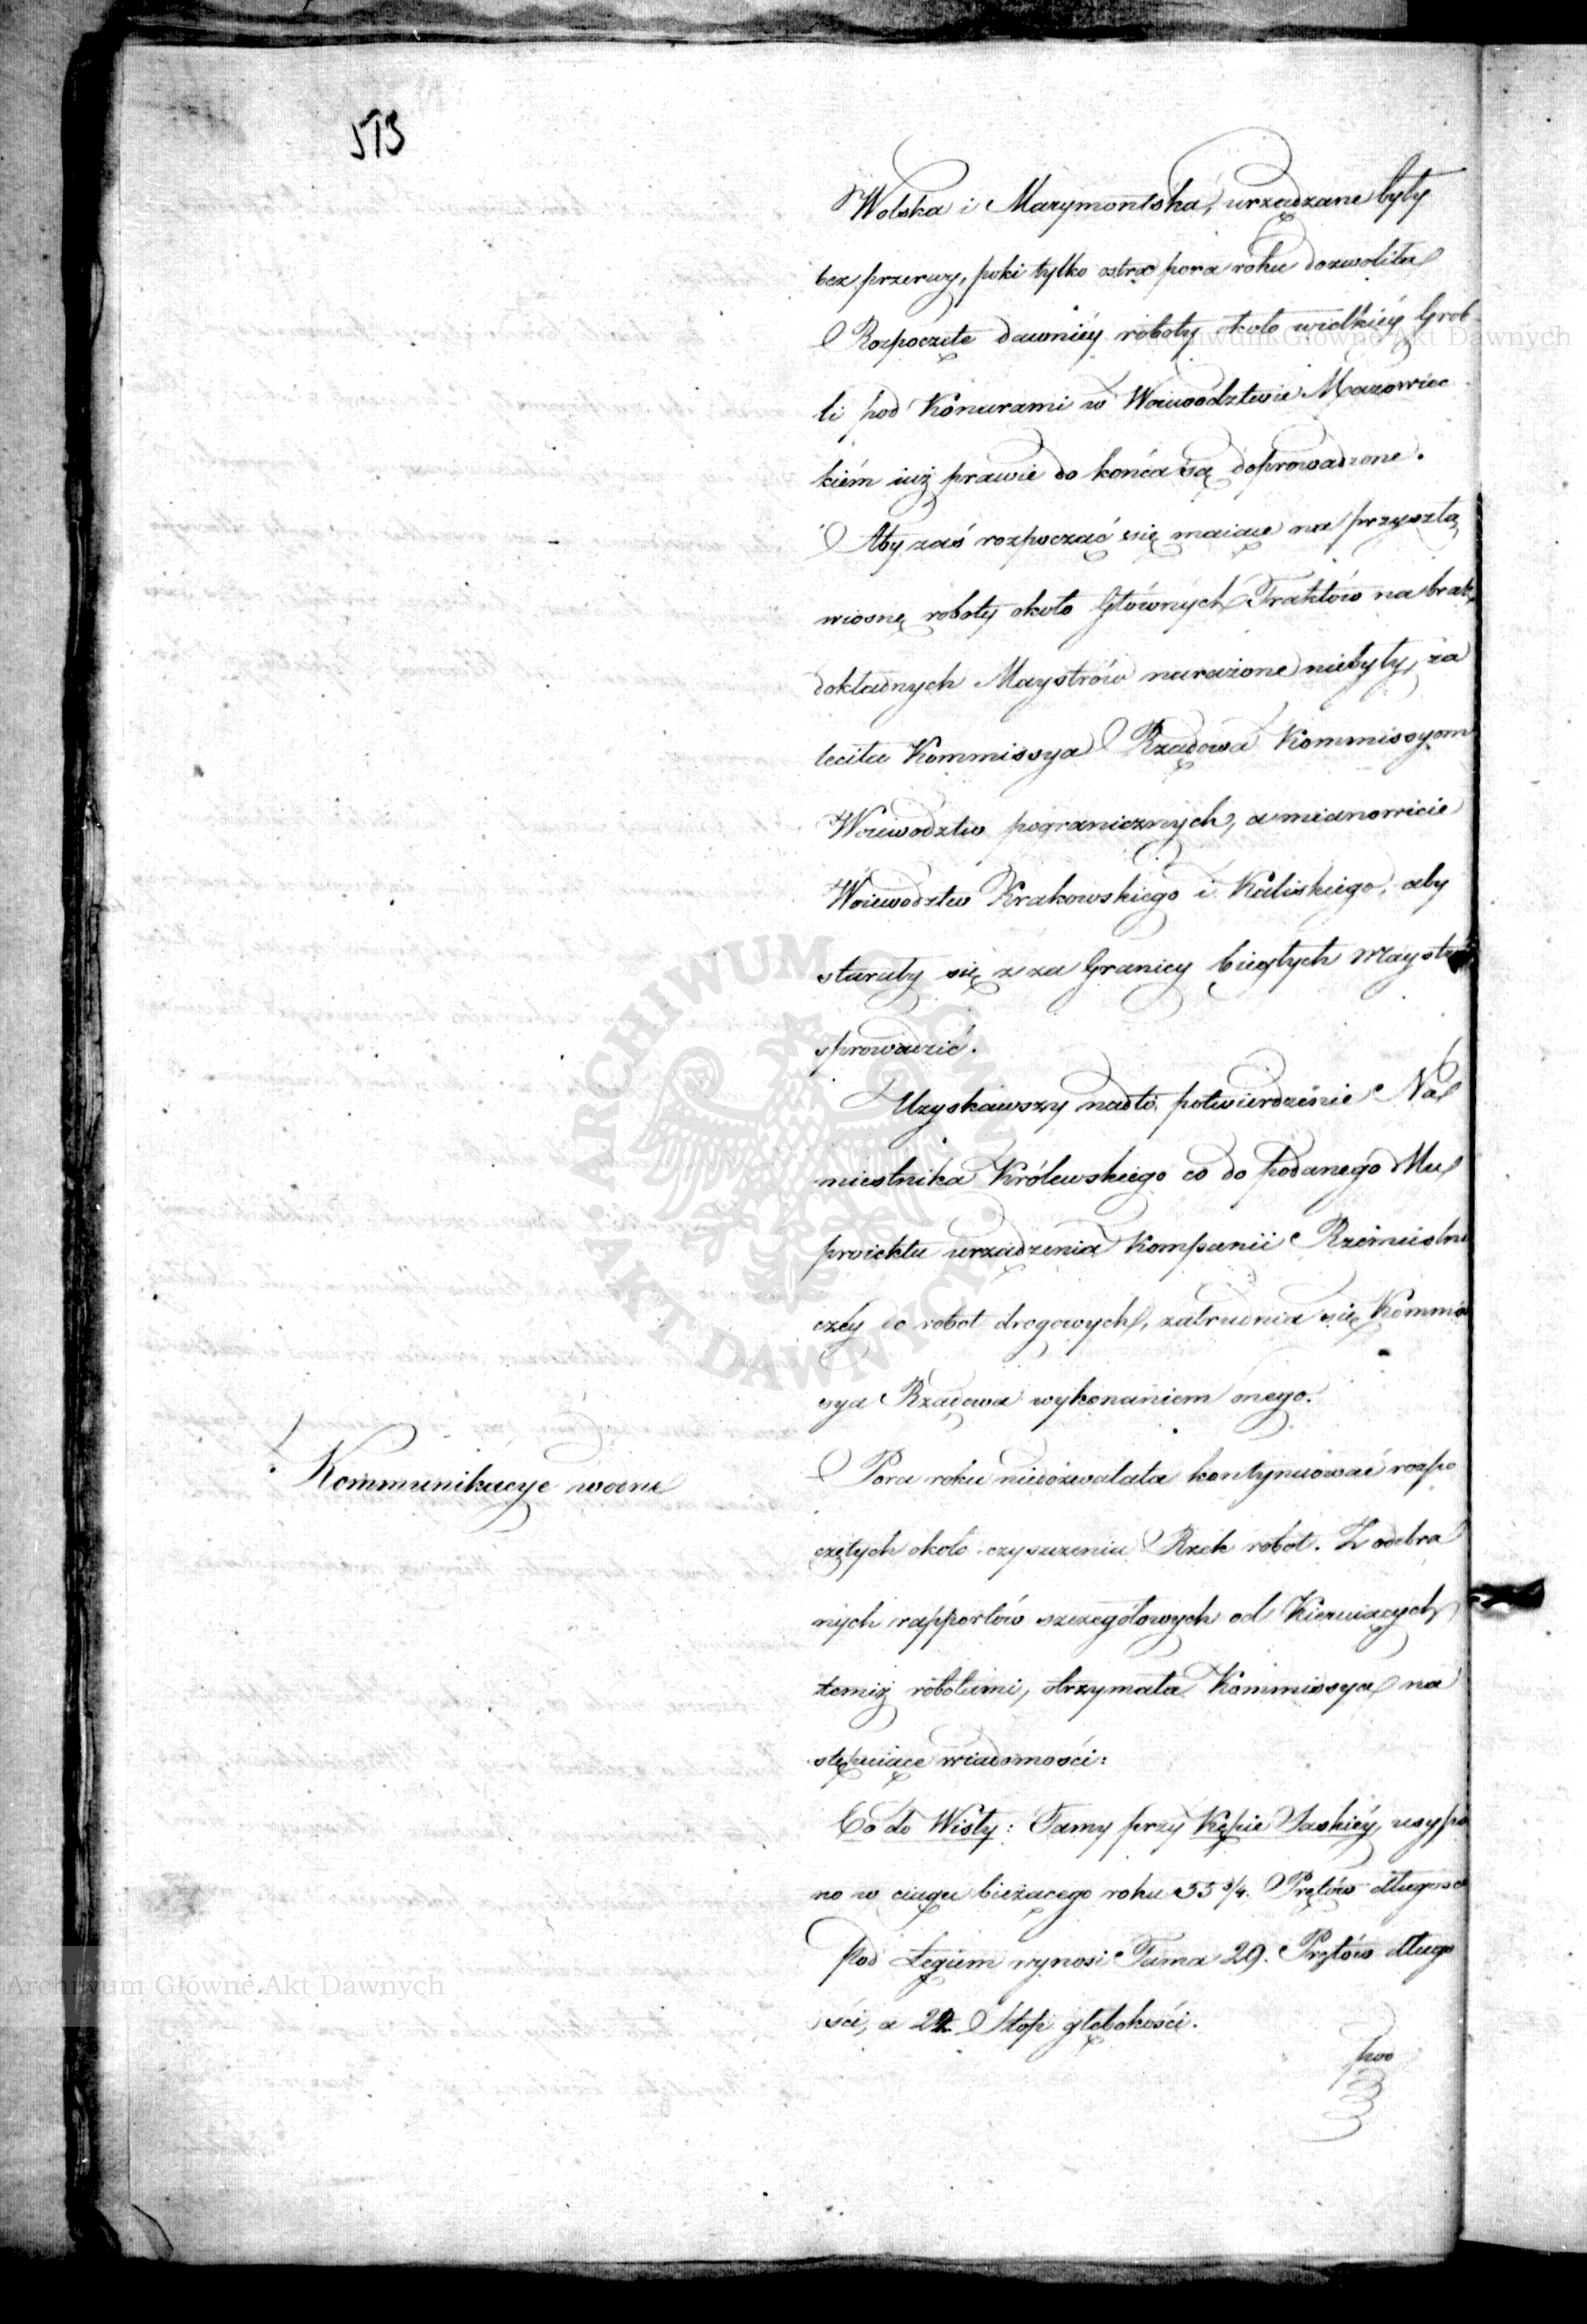 513
Wolska i Marymontska, urządzane były
bez przerwy, poki tylko ostra pora roku dozwoliła
Rozpoczęte dawniéy roboty około wielkiéy Grob
li pod Konarami w Woiewództwie Mazowiec
kiém iuż prawie do końca są doprowadzone.
Aby zaś rozpocząć się maiące na przyszłą
wiosnę roboty około Głównych Traktów na brak
dokładnych Maystrów narażone niebyły, za
leciła Kommissya Rządowa Kommissyom
Woiewodztw pogranicznych, a mianowicie
Woiewodztw Krakowskiego i Kaliskiego, aby
starały się z za Granicy biegłych Maystrów
sprowadzić.
Uzyskawszy nadto potwierdzenie Na
miestnika Królewskiego co do podanego Mu
proiektu urządzenia Kompanii Rzemieślni
czéy do robot drogowych, zatrudnia się Kommis
sya Rządowa wykonaniem onego.
Kommunikacye wodne
Pora roku niedozwalała kontynuować rozpo
czętych około czyszczenia Rzek robot. Z odebra
nych rapportów szczegółowych od Kieruiących
temiż robotami, otrzymała Kommissya na
stępuiące wiadomości:
Co do Wisły: Tamy przy Kępie Saskiéy, usypa
no w ciągu bieżącego roku 55 3/4. Prętów długości
Pod Łęgiem wynosi Tama 29. Prętów długo
ści, a 22 Stop głębokości.
pod
Archiwum Główne Akt Dawnych
Archiwum Główne Akt Dawnych
ARCHIWUM GŁÓWNE AKT DAWNYCH